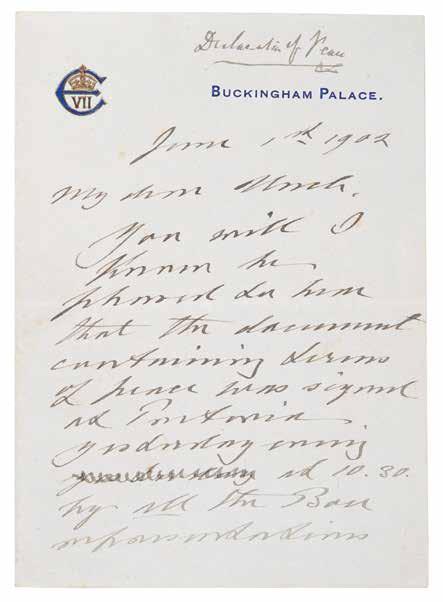 Declaration of Peace
VII
BUCKINGHAM PALACE.
June 1st 1902
My dear Uncle.
You will I
know be
pleased to hear
that the document
containing terms
of peace was signed
at Pretoria
yesterday evening
at 10.30.
by all the Boer
representatives